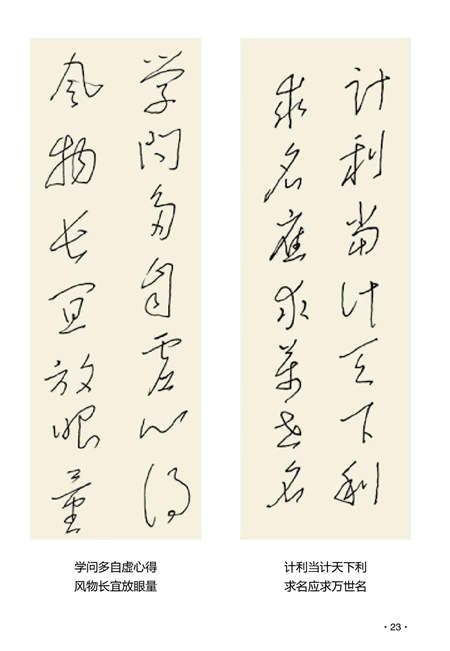 学問多自虚心得
風物长宜放眼量
计利当计天下利
求名應求萬世名
学问多自虚心得
风物长宜放眼量
计利当计天下利
求名应求万世名
·23·